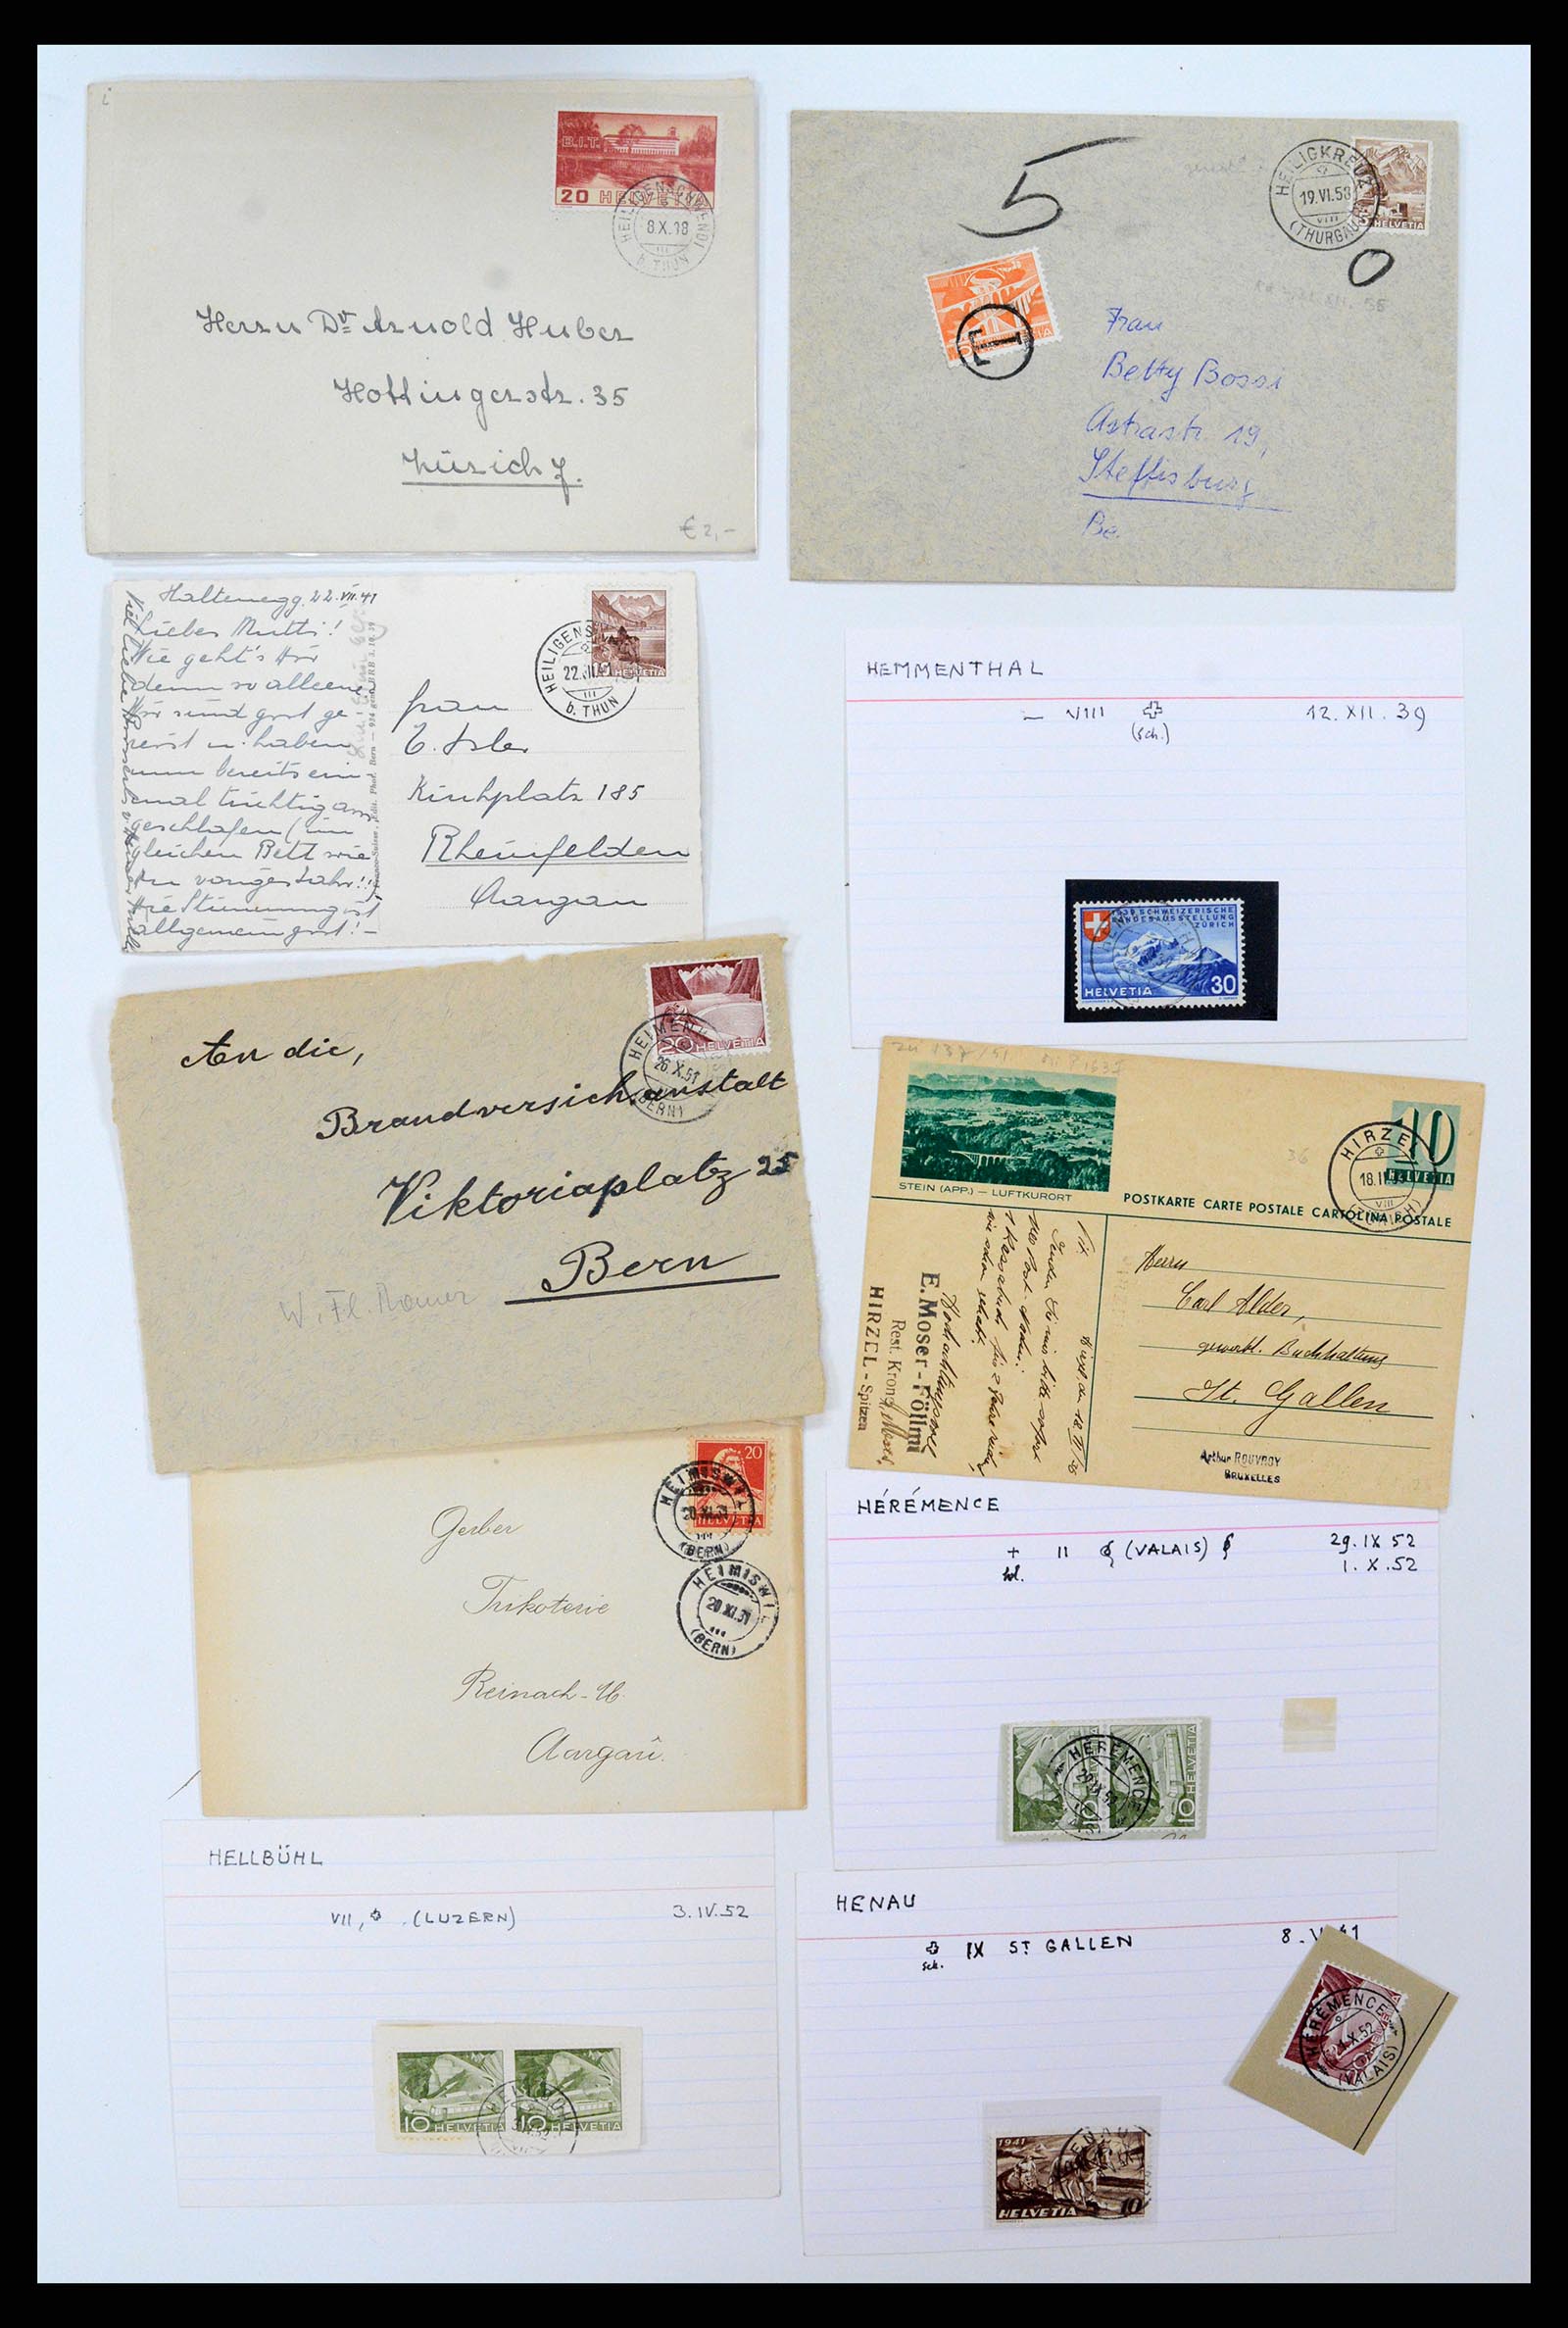 B.I.T.
20 HELVETIA
HEILIGENSCHWENDI
8.X.38
III
b. THUN
Herrn Dr. Arnold Huber
Hottingerstr. 35
Zürich 7.
€ 2,-
5
HEILIGKREUZ
19.VI.53
VIII
(THURGAU)
5 HELVETIA
0
T
Frau
Betty Bossi
Astrastr. 19,
Steffisburg
Be.
Haltenegg, 22.VII.41
Liebes Mutti!
Wie geht's Dir
denn so alleene
Wir sind gut ge
reist u. haben
nun bereits ein-
mal tüchtig aus
geschlafen (im
gleichen Bett wie
im vorigen Jahr!!
Die Stimmung ist
allgemein gut! -
HELVETIA
HEILIGENS
22.
III
b. THUN
Frau
E. Isler
Kirchplatz 185
Rheinfelden
Aargau
HEMMENTHAL
– VIII
(sch.)
12.XII.39
1939 SCHWEIZERISCHE
LANDESAUSSTELLUNG
ZÜRICH
HELVETIA 30
20 HELVETIA
HEIMEN
26.X.51
(BERN)
An die,
Brandversich.anstalt
Viktoriaplatz 25
Bern
STEIN (APP.) – LUFTKURORT
10
HELVETIA
HIRZEL
18.II
VIII
(ZÜRICH)
POSTKARTE CARTE POSTALE CARTOLINA POSTALE
Herrn
Carl Alder,
gewerbl. Buchhaltung
St. Gallen
Arthur ROUVROY
BRUXELLES
E. Moser-Föllmi
Rest. Krone
HIRZEL - Spitzen
20
HELVETIA
HEIMISWIL
20.XI.31
(BERN)
HEIMISWIL
20.XI.31
(BERN)
Gerber
Trikoterie
Reinach-
Aargau.
HÉRÉMENCE
+ II (VALAIS)
29.IX 52
1.X.52
10 HELVETIA
HÉRÉMENCE
29.IX.52
HELLBÜHL
VII, (LUZERN)
3.IV.52
10 HELVETIA 10 HELVETIA
HENAU
IX ST GALLEN
sch.
8.V 41
HÉRÉMENCE
1.X.52
(VALAIS)
1941
HENAU
HELVETIA 10